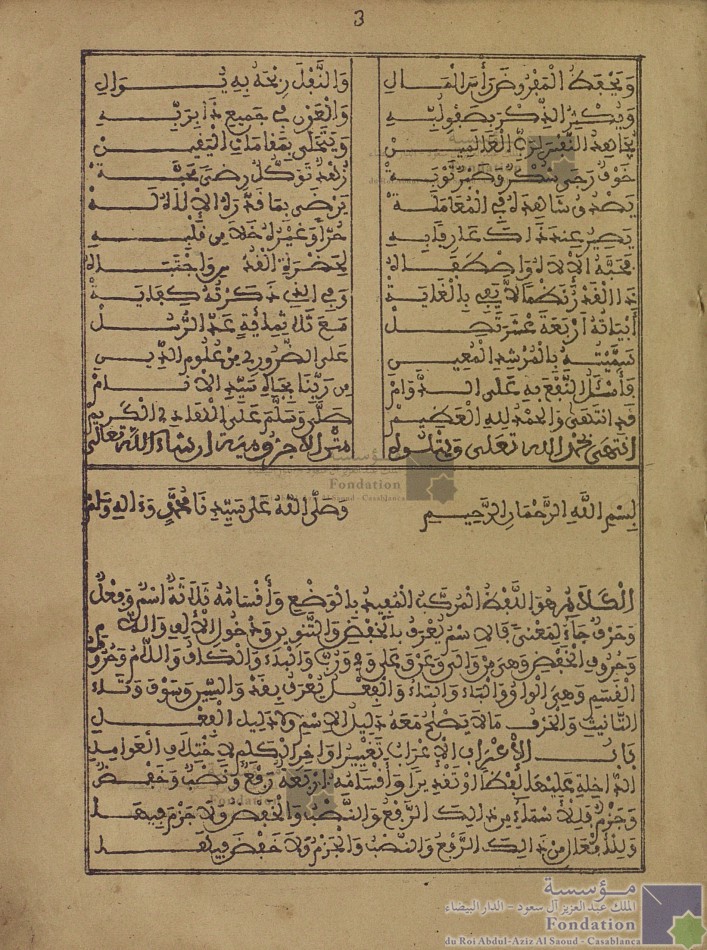 3
وَيَحْفَظُ الْمَفْرُوضَ رَأْسَ الْمَالِ وَالنَّفْلَ رِبْحَهُ بِهِ يُوَالِ
وَيُكْثِرُ الذِّكْرَ بِصَفْوِ لُبِّهِ وَالْعَوْنُ فِي جَمِيعِ ذَا بِرَبِّهِ
يُجَاهِدُ النَّفْسَ لِرَبِّ الْعَالَمِينْ وَيَتَحَلَّى بِمَقَامَاتِ الْيَقِينْ
خَوْفٌ رَجَى شُكْرٌ وَصَبْرٌ تَوْبَةٌ زُهْدٌ تَوَكُّلٌ رِضَى مَحَبَّةْ
يَصْدُقُ شَاهِدَهُ فِي الْمُعَامَلَةْ يَرْضَى بِمَا قَدَّرَهُ الِالَاهُ لَهْ
يَصِيرُ عِنْدَ ذَاكَ عَارِفًا بِهِ حُرًّا وَغَيْرُهُ خَلَا مِنْ قَلْبِهِ
فَحَبَّهُ الِالَاهُ وَاصْطَفَاهُ لِحَضْرَةِ الْقُدُّوسِ وَاجْتَبَاهُ
ذَا الْقَدْرُ نَظْمًا لَا يَفِي بِالْغَايَةْ وَفِي الذِي ذَكَرْتُهُ كِفَايَةْ
أَبْيَاتُهُ أَرْبَعَةَ عَشْرَ تَصِلْ مَعَ ثَلَاثِمِائَةٍ عَدَّ الرُّسُلْ
سَمَّيْتُهُ بِالْمُرْشِدِ الْمُعِينِ عَلَى الضَّرُورِي مِنْ عُلُومِ الدِّينِ
وَأَسْئَلُ النَّفْعَ بِهِ عَلَى الدَّوَامْ مِن رَبِّنَا بِجَاهِ سَيِّدِ الانَامْ
قَدِ انْتَهَى وَالْحَمْدُ لِلهِ الْعَظِيمْ صَلَّى وَسَلَّمَ عَلَى الْهَادِي الْكَرِيمْ
انتهى بحمد الله تعلى ويتلوه متن الاجرومية ان شاء الله تعالى
بِسْمِ اللَّهِ الرَّحْمَانِ الرَّحِيمِ وَصَلَّى اللَّهُ عَلَى سَيِّدِنَا مُحَمَّدٍ وَءَالِهِ وَسَلَّمَ
الْكَلَامُ هُوَ اللَّفْظُ الْمُرَكَّبُ الْمُفِيدُ بِالْوَضْعِ وَأَقْسَامُهُ ثَلَاثَةٌ اسْمٌ وَفِعْلٌ
وَحَرْفٌ جَاءَ لِمَعْنًى فَالِاسْمُ يُعْرَفُ بِالْخَفْضِ وَالتَّنْوِينِ وَدُخُولِ الْأَلِفِ وَاللَّامِ
وَحُرُوفِ الْخَفْضِ وَهِيَ مِنْ وَإِلَى وَعَنْ وَعَلَى وَفِي وَرُبَّ وَالْبَاءُ وَالْكَافُ وَاللَّامُ وَحُرُوفُ
الْقَسَمِ وَهِيَ الْوَاوُ وَالْبَاءُ وَالتَّاءُ وَالْفِعْلُ يُعْرَفُ بِقَدْ وَالسِّينِ وَسَوْفَ وَتَاءِ
التَّانِيثِ وَالْحَرْفُ مَا لَا يَصْلُحُ مَعَهُ دَلِيلُ الِاسْمِ وَلَا دَلِيلُ الْفِعْلِ
بَابُ الْإِعْرَابِ الْإِعْرَابُ تَغْيِيرُ أَوَاخِرِ الْكَلِمِ لِاخْتِلَافِ الْعَوَامِلِ
الدَّاخِلَةِ عَلَيْهَا لَفْظًا أَوْ تَقْدِيرًا وَأَقْسَامُهُ أَرْبَعَةٌ رَفْعٌ وَنَصْبٌ وَخَفْضٌ
وَجَزْمٌ فَلِلْأَسْمَاءِ مِن ذَالِكَ الرَّفْعُ وَالنَّصْبُ وَالْخَفْضُ وَلَا جَزْمَ فِيهَا
وَلِلْأَفْعَالِ مِن ذَالِكَ الرَّفْعُ وَالنَّصْبُ وَالْجَزْمُ وَلَا خَفْضَ فِيهَا
مؤسسة
الملك عبد العزيز آل سعود - الدار البيضاء
Fondation
du Roi Abdul-Aziz Al Saoud - Casablanca